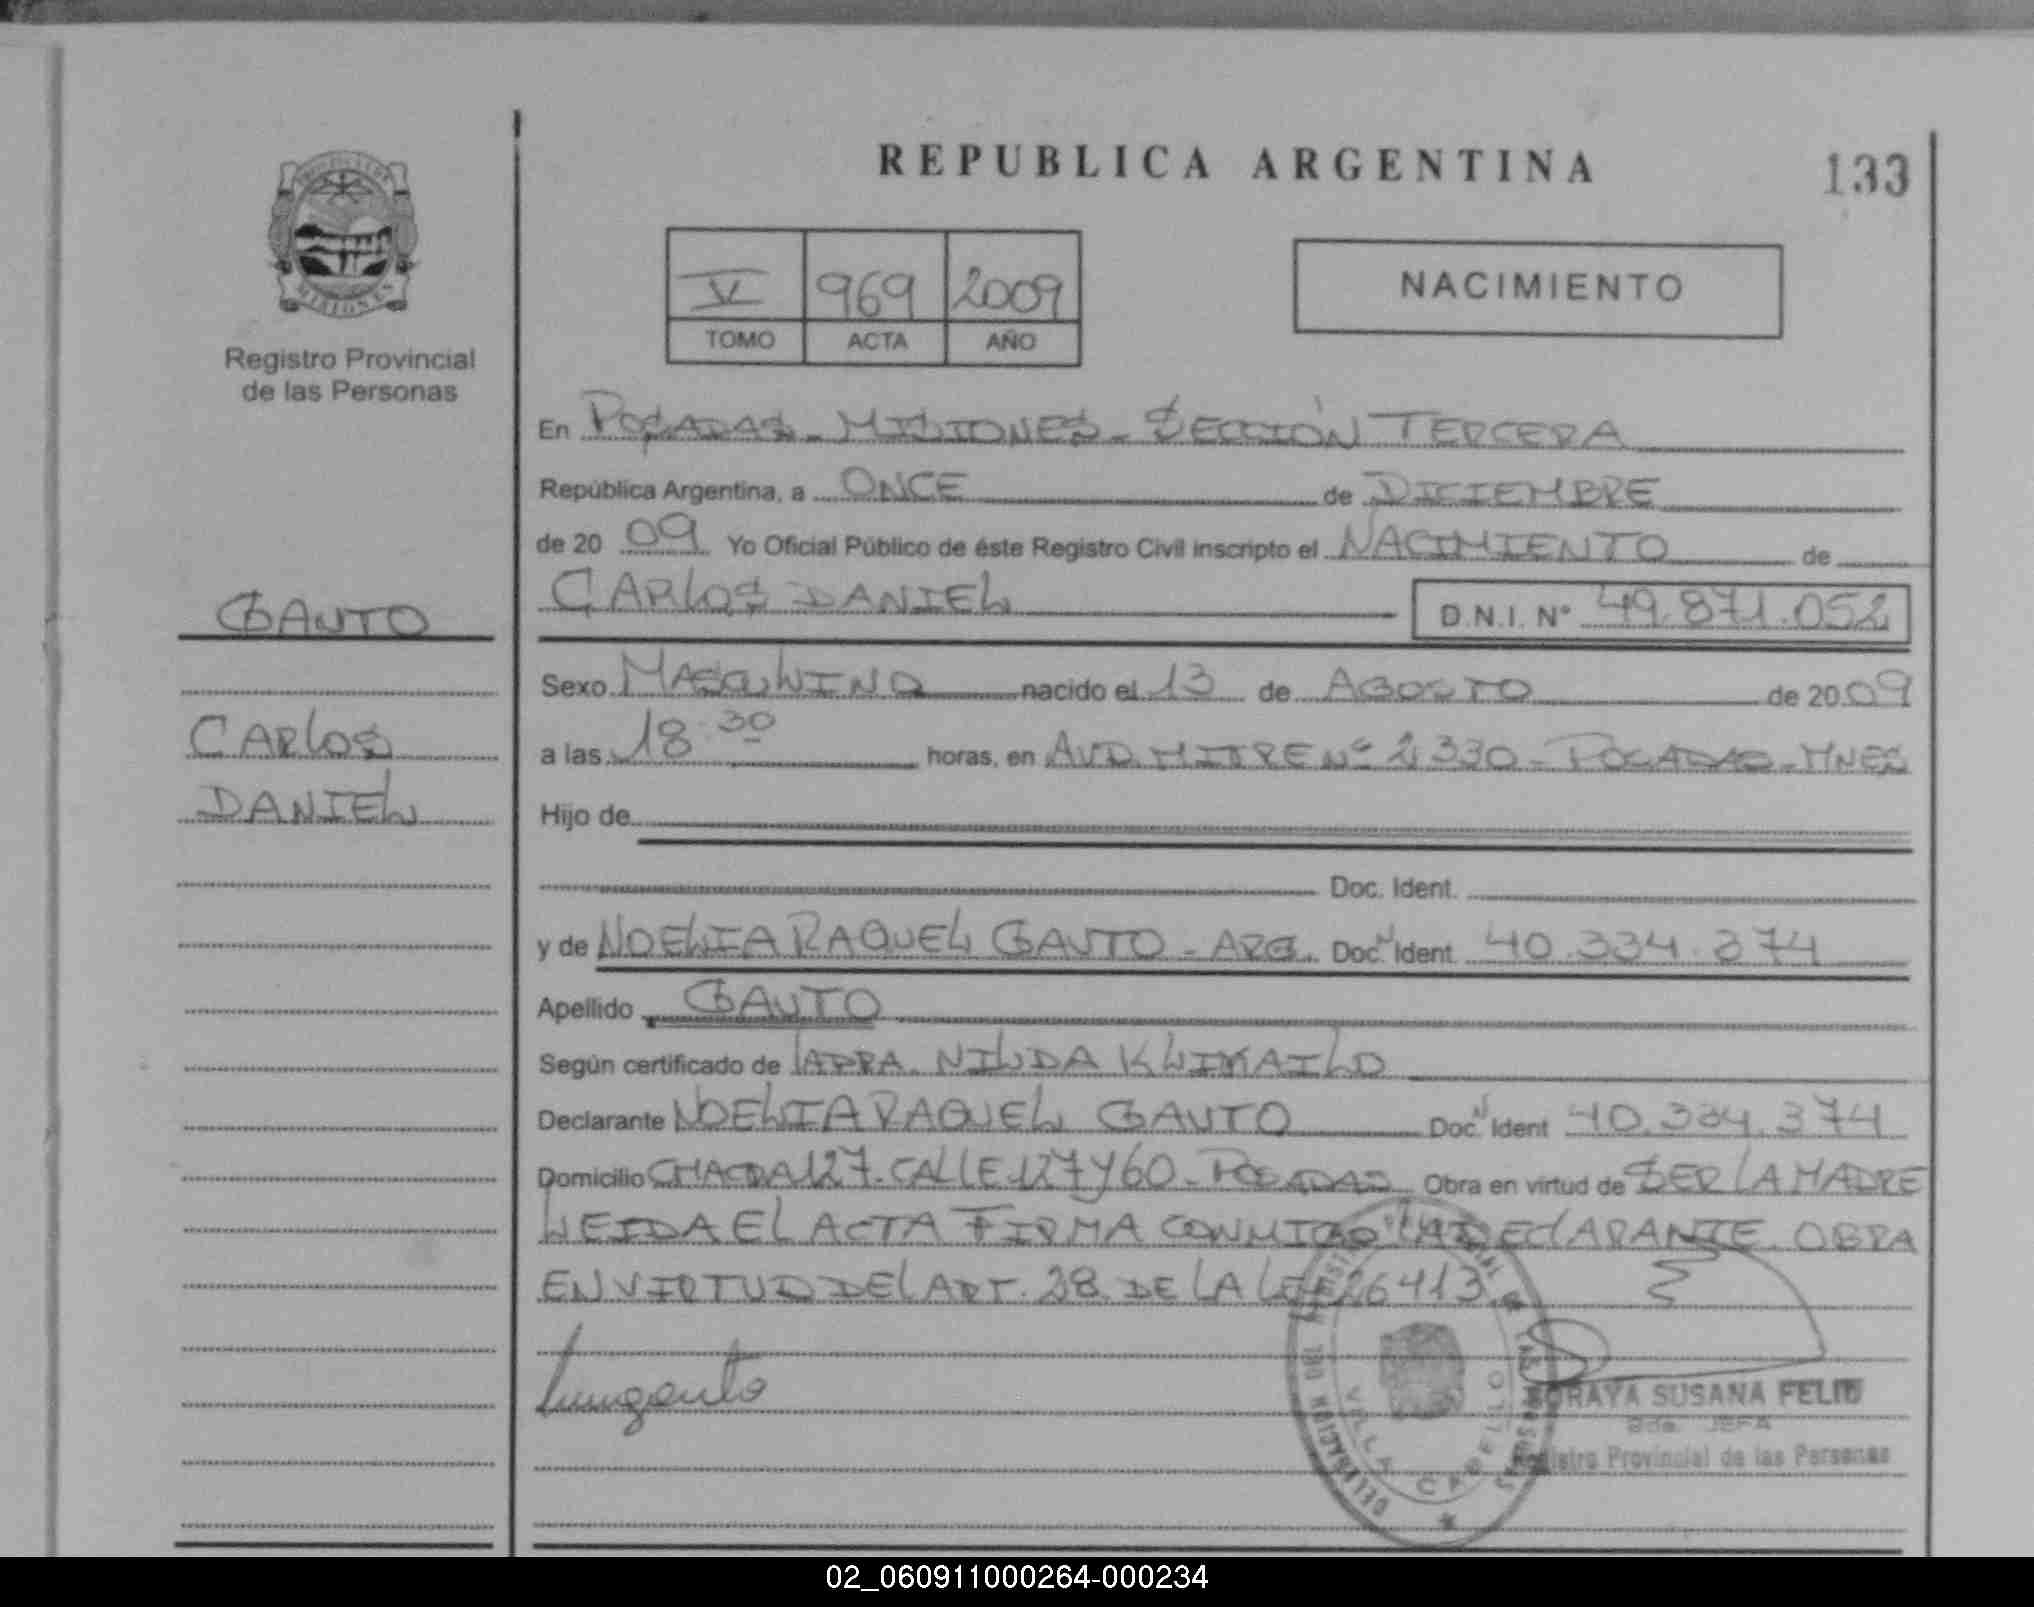 REPUBLICA ARGENTINA
133
MISIONES
Registro Provincial
de las Personas
V 969 2009
TOMO ACTA AÑO
NACIMIENTO
En POSADAS - MISIONES - SECCIÓN TERCERA
República Argentina, a ONCE de DICIEMBRE
de 20 09 Yo Oficial Público de éste Registro Civil inscripto el NACIMIENTO de
CARLOS DANIEL D.N.I. Nº 49.871.052
GAUTO
CARLOS
DANIEL
Sexo MASCULINO nacido el 13 de AGOSTO de 20 09
a las 18.30 horas, en AVD. MITRE Nº 2330 - POSADAS - MNES
Hijo de
Doc. Ident.
y de NOELIA RAQUEL GAUTO - ARG. Doc. N Ident. 40.334.374
Apellido GAUTO
Según certificado de LA DRA. NILDA
Declarante NOELIA RAQUEL GAUTO Doc. N Ident 40.334.374
Domicilio CHACRA 127. CALLE 127 Y 60 - POSADAS Obra en virtud de SER LA MADRE
LEIDA EL ACTA FIRMA CONMIGO LA DECLARANTE. OBRA
EN VIRTUD DEL ART. 28 DE LA LEY 26413.
SORAYA SUSANA FELIU
JEFA
Registro Provincial de las Personas
DELEGACION DEL REGISTRO PROVINCIAL DE LAS PERSONAS
VILLA CABELLO
02_060911000264-000234